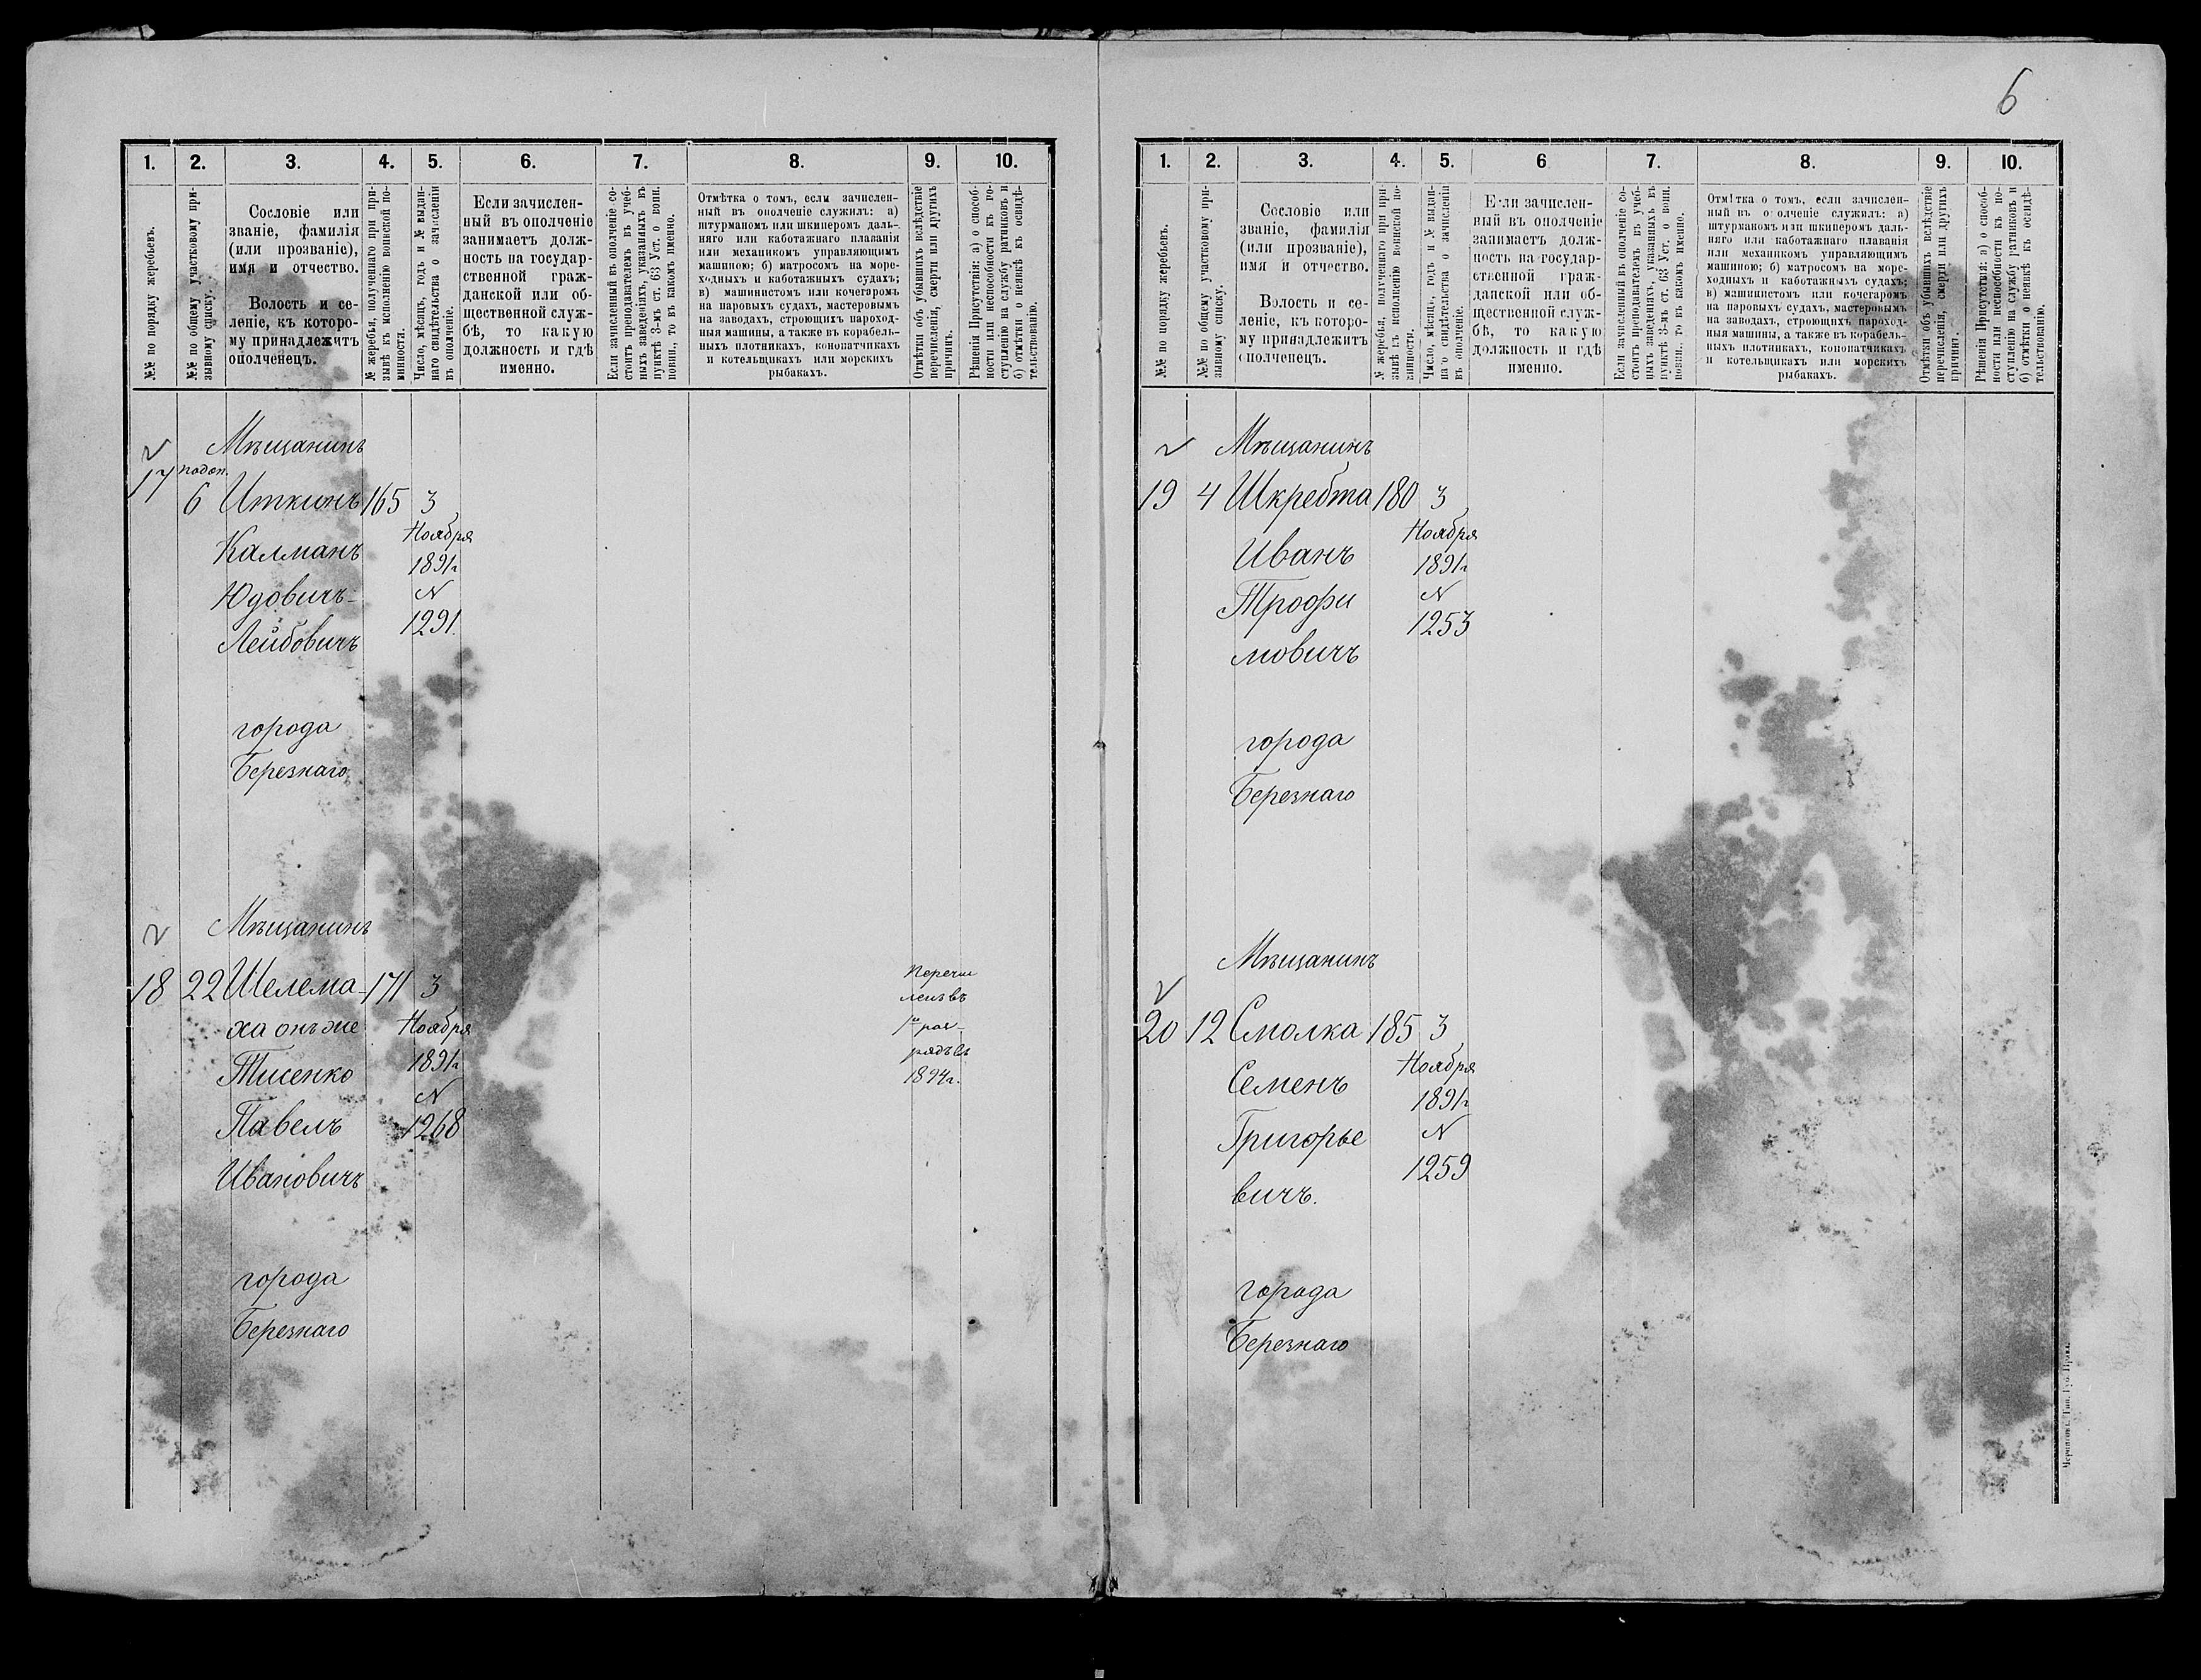 6
1. 2. 3. 4. 5. 6. 7. 8. 9. 10.
№№ по порядку жеребьевъ.
№№ по общему участковому при-
зывному списку.
Сословіе или
званіе, фамилія
(или прозваніе),
имя и отчество.
Волость и се-
леніе, къ которо-
му принадлежитъ
ополченецъ.
№ жеребья, полученнаго при при-
зывѣ къ исполненію воинской по-
винности.
Число, мѣсяцъ, годъ и № выдан-
наго свидѣтельства о зачисленіи
въ ополченіе.
Если зачислен-
ный въ ополченіе
занимаетъ долж-
ность на государ-
ственной граж-
данской или об-
щественной служ-
бѣ, то какую
должность и гдѣ
именно.
Если зачисленный въ ополченіе со-
стоитъ преподавателемъ въ учеб-
ныхъ заведеніяхъ, указанныхъ въ
пунктѣ 3-мъ ст. 63 Уст. о воин.
повин., то въ какомъ именно.
Отмѣтка о томъ, если зачислен-
ный въ ополченіе служилъ: а)
штурманомъ или шкиперомъ даль-
няго или каботажнаго плаванія
или механикомъ управляющимъ
машиною; б) матросомъ на море-
ходныхъ и каботажныхъ судахъ;
в) машинистомъ или кочегаромъ
на паровыхъ судахъ, мастеровымъ
на заводахъ, строющихъ пароход-
ныя машины, а также въ корабель-
ныхъ плотникахъ, конопатчикахъ
и котельщикахъ или морскихъ
рыбакахъ.
Отмѣтки объ убывшихъ вслѣдствіе
перечисленія, смерти или другихъ
причинъ.
Рѣшенія Присутствія: а) о способ-
ности или неспособности къ по-
ступленію на службу ратниковъ и
б) отмѣтки о неявкѣ къ освидѣ-
тельствованію.
Мѣщанинъ
17 6 Иткинъ 165 3
Ноября
Калманъ
1891г
Юдовичъ- N
1291.
Лейбовичъ
города
Березнаго
Мѣщанинъ
18 22 Шелема- 171 3
ха онъ же Ноября
Тисенко 1891г
N
Павелъ 1268
Ивановичъ
Перечи
ленъ въ
1й раз-
рядъ въ
1894г.
города
Березнаго
1. 2. 3. 4. 5. 6 7. 8. 9. 10.
№№ по порядку жеребьевъ.
№№ по общему участковому при-
зывному списку.
Сословіе или
званіе, фамилія
(или прозваніе),
имя и отчество.
Волость и се-
леніе, къ которо-
му принадлежитъ
ополченецъ.
№ жеребья, полученнаго при при-
зывѣ къ исполненію воинской по-
винности.
Число, мѣсяцъ, годъ и № выдан-
наго свидѣтельства о зачисленіи
въ ополченіе.
Если зачислен-
ный въ ополченіе
занимаетъ долж-
ность на государ-
ственной граж-
данской или об-
щественной служ-
бѣ, то какую
должность и гдѣ
именно.
Если зачисленный въ ополченіе со-
стоитъ преподавателемъ въ учеб-
ныхъ заведеніяхъ, указанныхъ въ
пунктѣ 3-мъ ст. 63 Уст. о воин.
повин., то въ какомъ именно.
Отмѣтка о томъ, если зачислен-
ный въ ополченіе служилъ: а)
штурманомъ или шкиперомъ даль-
няго или каботажнаго плаванія
или механикомъ управляющимъ
машиною; б) матросомъ на море-
ходныхъ и каботажныхъ судахъ;
в) машинистомъ или кочегаромъ
на паровыхъ судахъ, мастеровымъ
на заводахъ, строющихъ пароход-
ныя машины, а также въ корабель-
ныхъ плотникахъ, конопатчикахъ
и котельщикахъ или морскихъ
рыбакахъ.
Отмѣтки объ убывшихъ вслѣдствіе
перечисленія, смерти или другихъ
причинъ.
Рѣшенія Присутствія: а) о способ-
ности или неспособности къ по-
ступленію на службу ратниковъ и
б) отмѣтки о неявкѣ къ освидѣ-
тельствованію.
Мѣщанинъ
19 4 Шкребта 180 3
Ноября
Иванъ 1891г
Трофи N
1253
мовичъ
города
Березнаго
Мѣщанинъ
20 12 Смолка 185 3
Ноября
Семенъ 1891г
Григорье N
1259
вичъ.
города
Березнаго
Черниговъ. Тип. Губ. Правл.